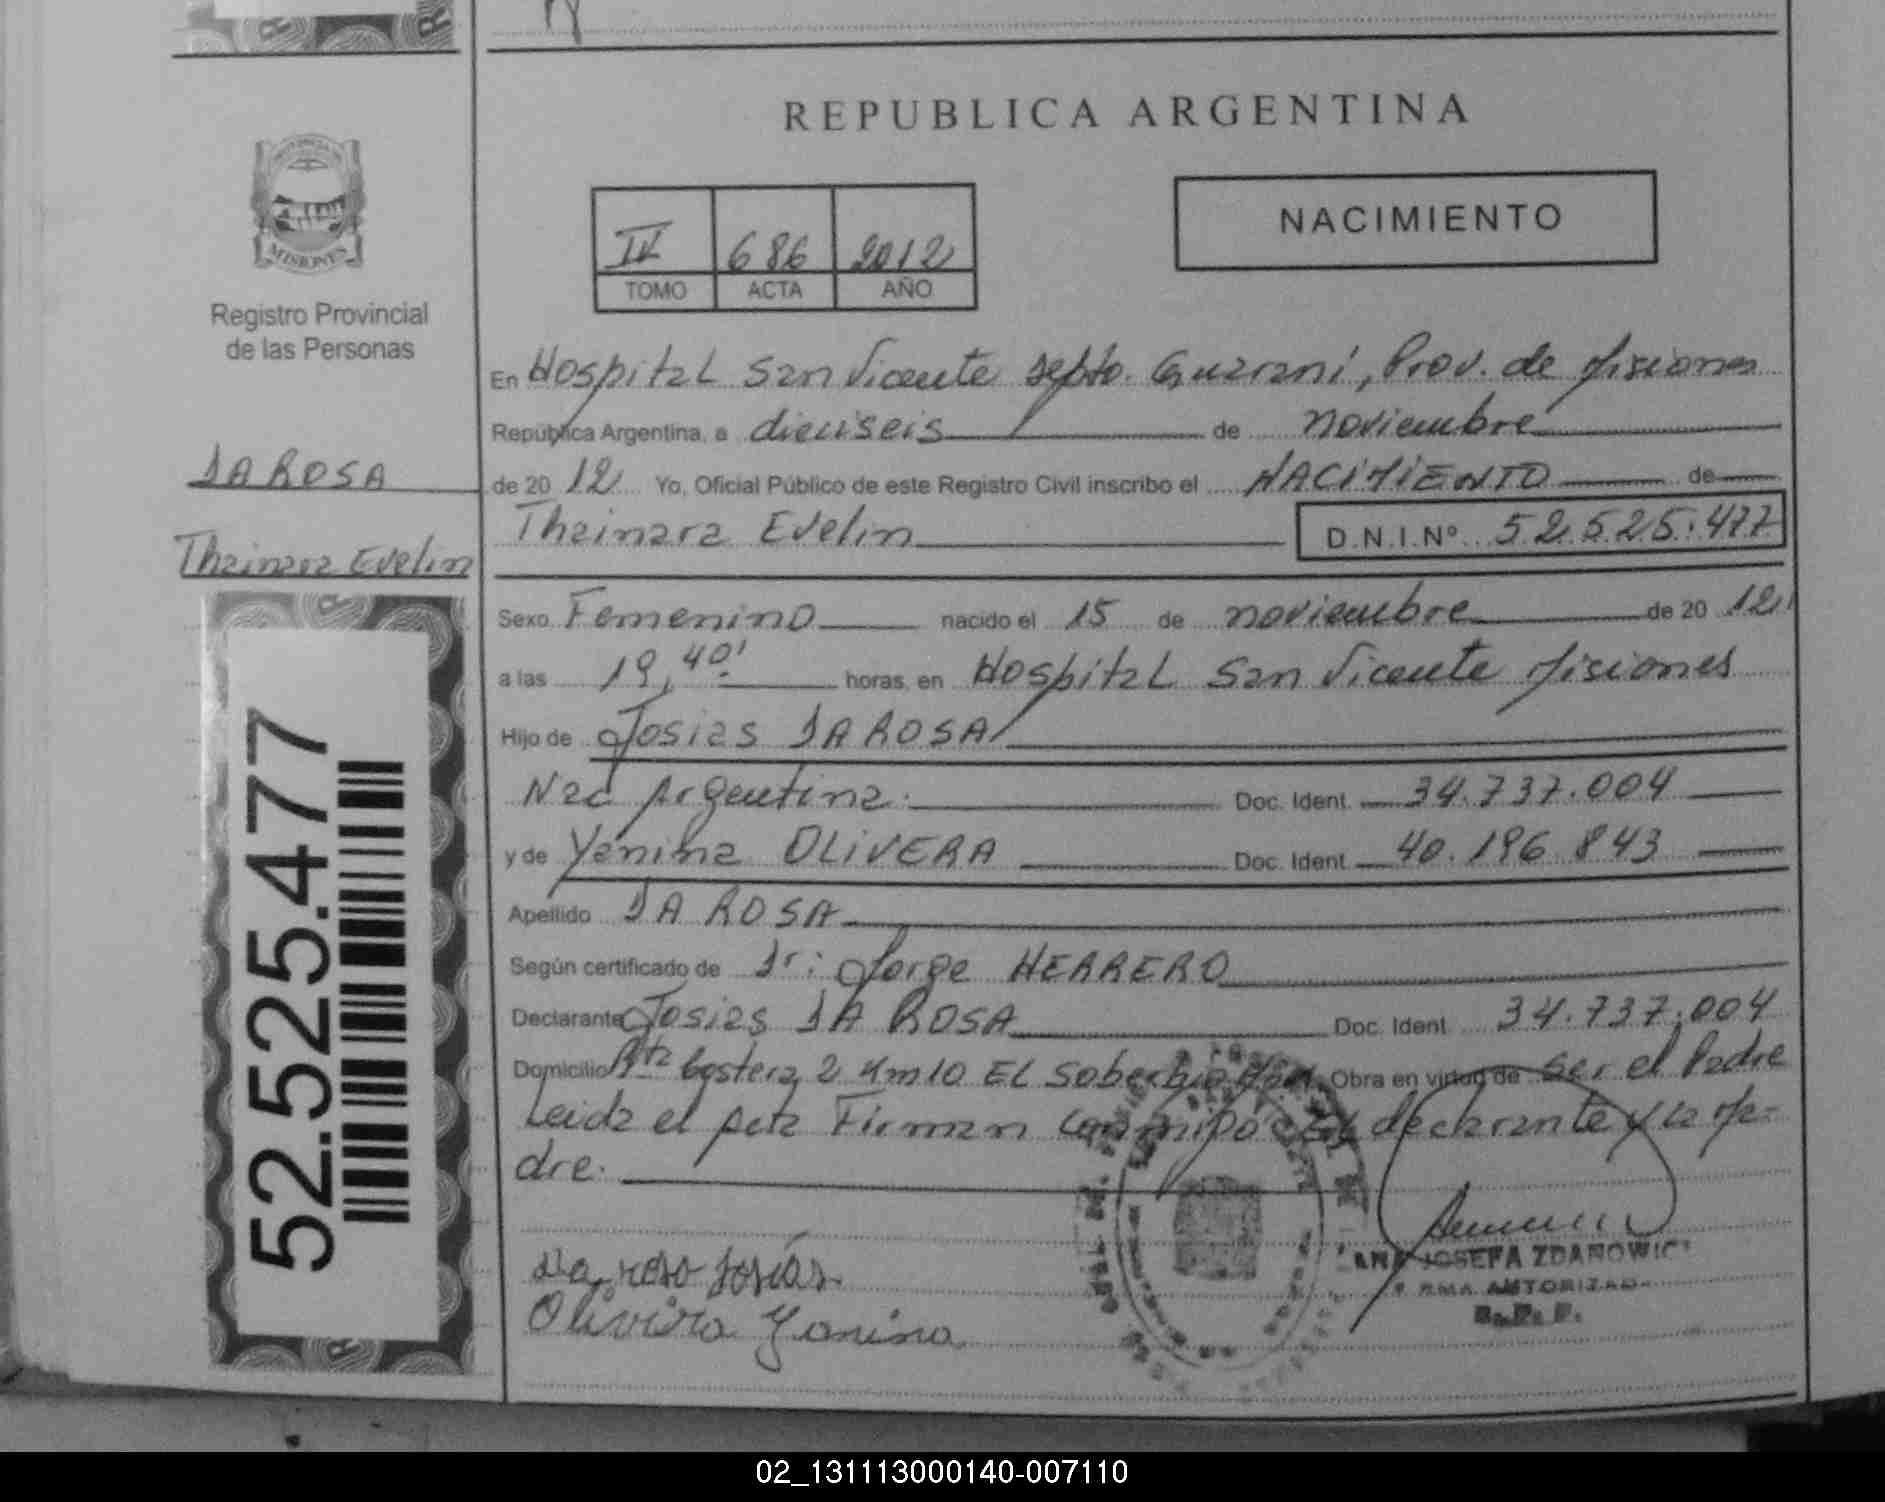 REPUBLICA ARGENTINA
NACIMIENTO
IV 686 2012
TOMO ACTA AÑO
MISIONES
Registro Provincial
de las Personas
DA ROSA
Thainara Evelin
52.525.477
En Hospital San Vicente Depto. Guaraní, Prov. de Misiones
República Argentina, a dieciseis de noviembre
de 20 12 Yo, Oficial Público de este Registro Civil inscribo el NACIMIENTO de
Thainara Evelin D.N.I.Nº 52.525.477
Sexo Femenino nacido el 15 de noviembre de 20 12
a las 19,40' horas, en Hospital San Vicente Misiones
Hijo de Josias DA ROSA
Nac Argentina. Doc. Ident. 34.737.004
y de Yanina OLIVERA Doc. Ident. 40.196.843
Apellido DA ROSA
Según certificado de Dr: Jorge HERRERO
Declarante Josias DA ROSA Doc. Ident. 34.737.004
Domicilio Rta Costera 2 Km 10 EL Soberbio Obra en virtud de ser el Padre
Leida el Acta Firman conmigo el declarante y la Ma-
dre.
Da roso Josías
Olivira Yanina
ANA JOSEFA ZDANOWIC
FIRMA AUTORIZADA
R. P. P.
02_131113000140-007110